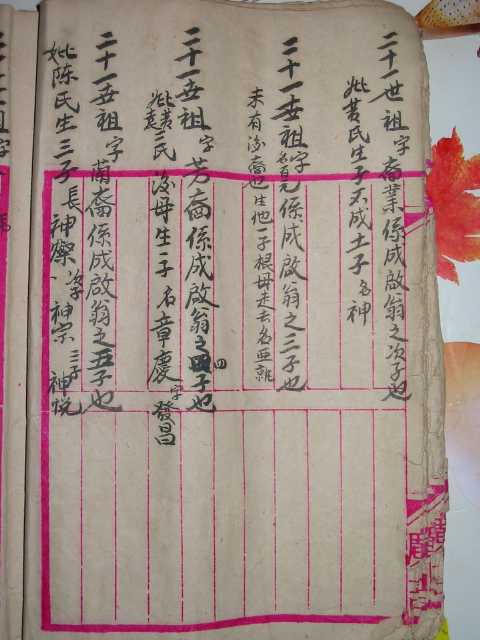 二十一世祖字裔業係成啟翁之次子也
妣黄氏生子不成士子名神
二十一世祖字名百元係成啟翁之三子也
未有後裔也生他一子根母走去名亜
二十一世祖字芳裔係成啟翁之四子也
四
妣黄袁三氏後母生一子名章慶字發昌
二十一世祖字蘭裔係成啟翁之五子也
妣陈氏生三子長神燦次子神宗三子神悦